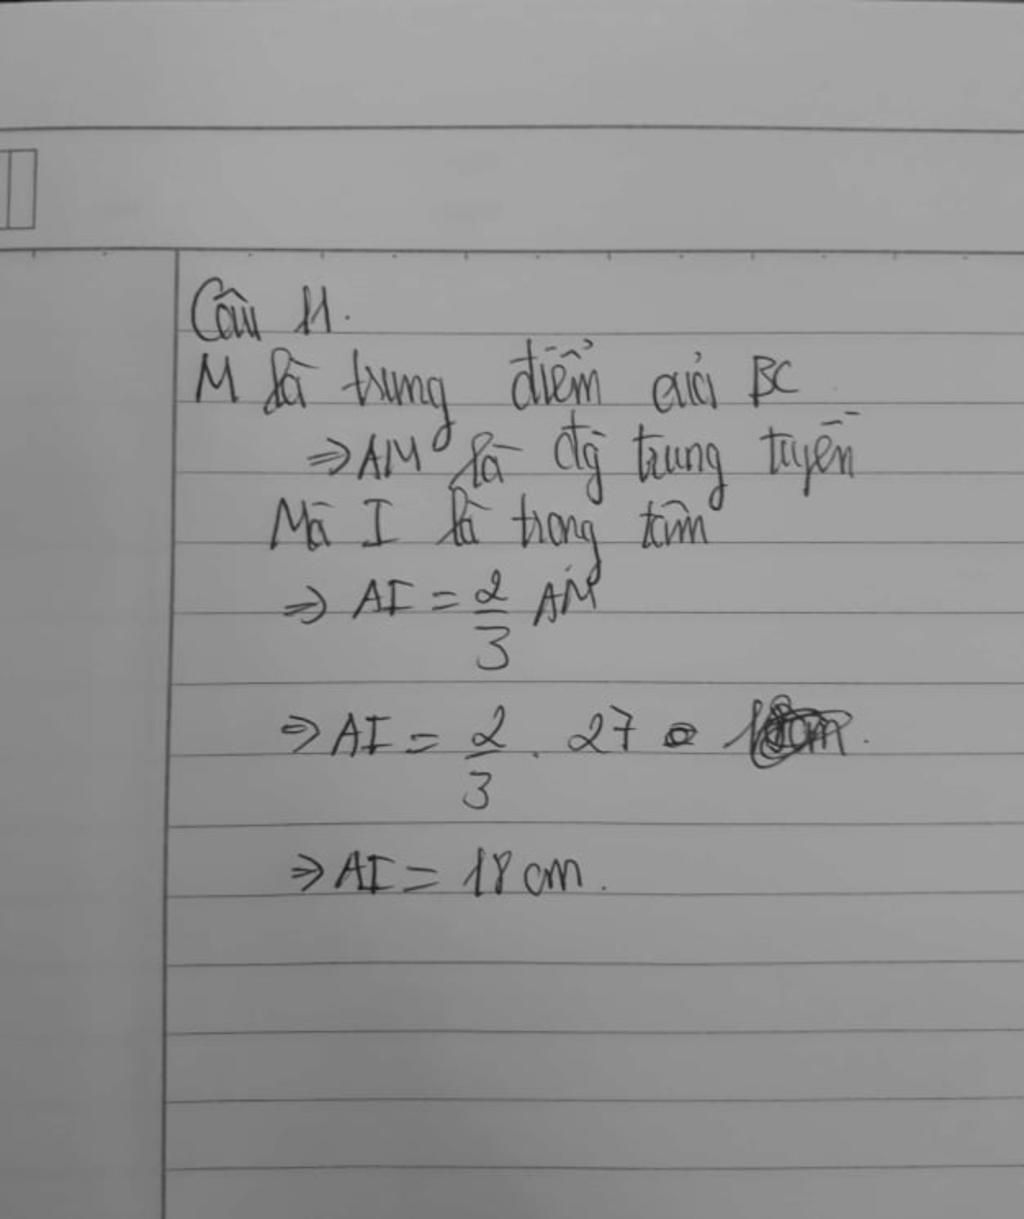 Câu 11.
M là trung điểm của BC
⇒ AM là đg trung tuyến
Mà I là trong tâm
⇒ AI = 2/3 AM
⇒ AI = 2/3 . 27 =
⇒ AI = 18 cm.